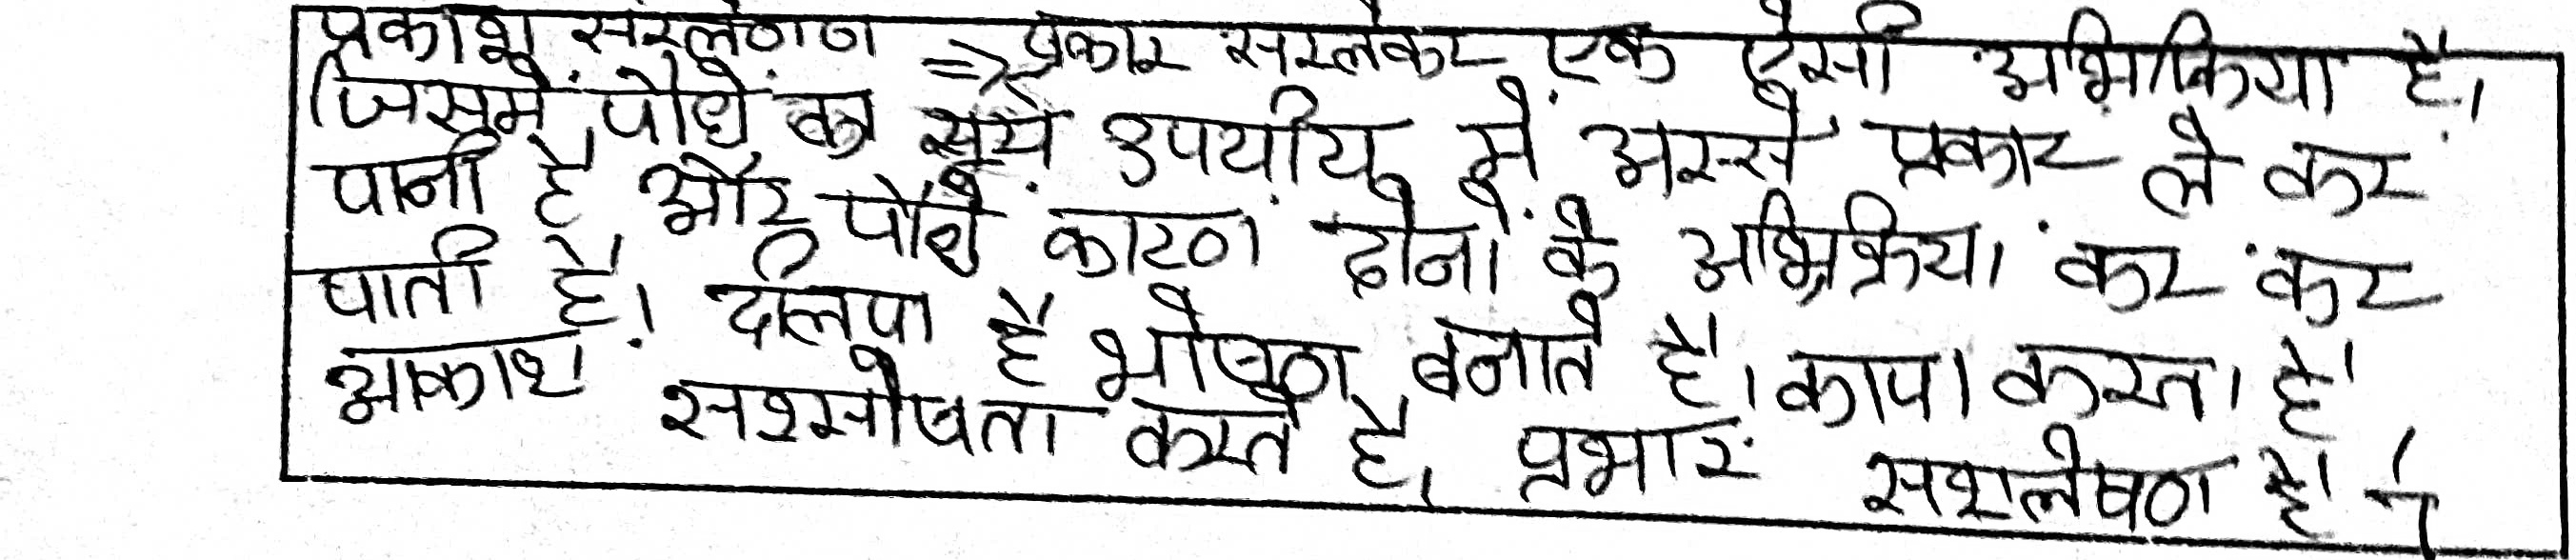 प्रकाश संश्लेणण => प्रकार सरलेकर एक ऐसी अभिक्रिया है।
जिसमें पौधे का सूर्य उपर्याय में अरसे प्रकार ले कर
पानी है और पौधे कारण दोनों के अभिक्रिया कर कर
पाती है। दलिपा है भोषण बनाते है। कापा करता है
आकाश सश्सोषता करते है, प्रभार सश्लेषण है।